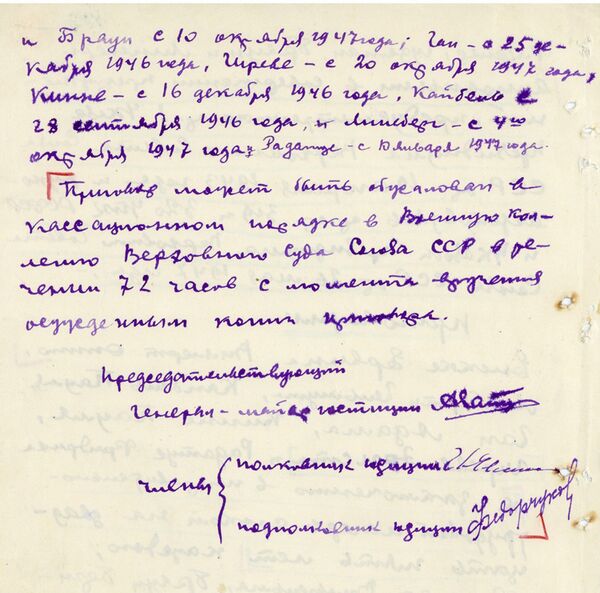 и Браун с 10 октября 1947 года; Ган – с 25 де-
кабря 1946 года, Чиреве – с 20 октября 1947 года,
Кинне – с 16 декабря 1946 года, с
28 сентября 1946 года, и – с 4го
октября 1947 года; Радатус – с января 1947 года.
Приговор может быть обжалован в
кассационном порядке в Военную Кол-
легию Верховного Суда Союза ССР в те-
чении 72 часов с момента вручения
осужденным копии приговора.
Председательствующий
генерал-майор юстиции
члены
полковник юстиции
подполковник юстиции Федорчуков